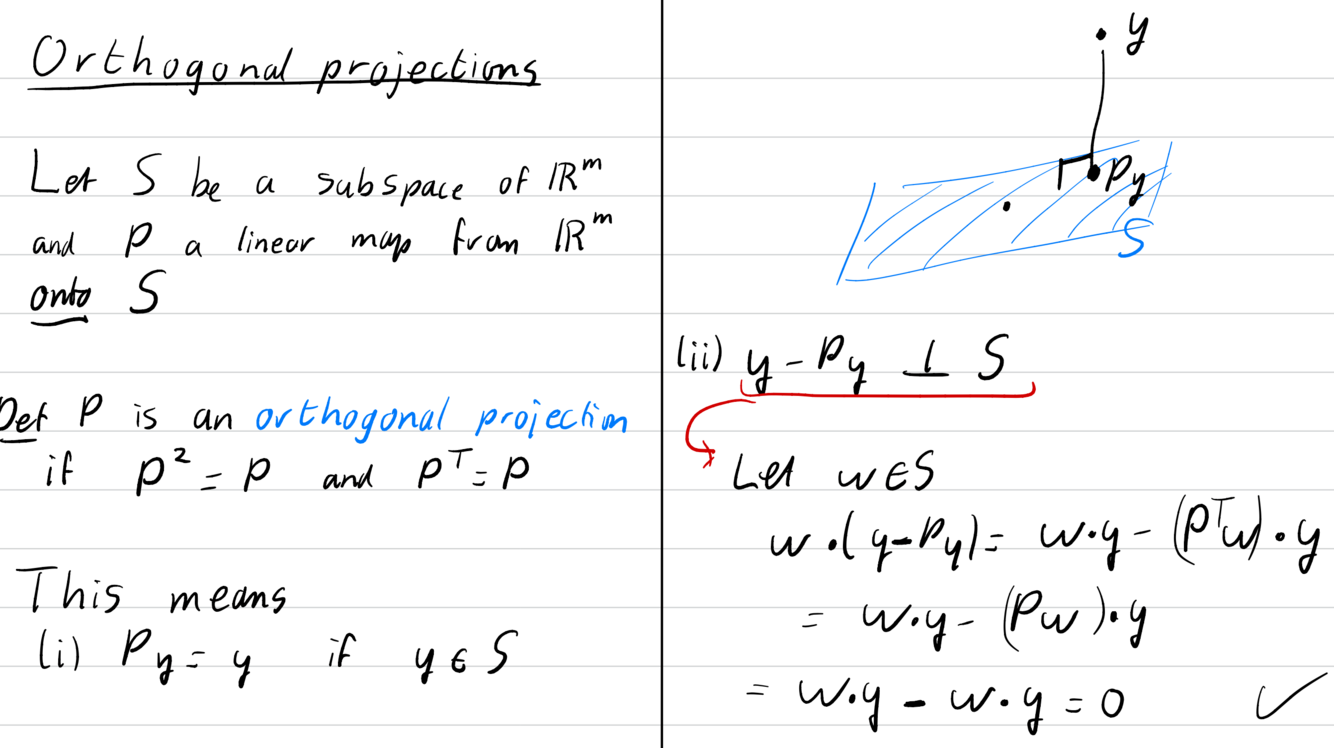 Orthogonal projections
Let S be a subspace of ℝᵐ
and P a linear map from ℝᵐ
onto S
Def P is an orthogonal projection
if P² = P and Pᵀ = P
This means
(i) Py = y if y ∈ S
y
Py
S
(ii) y - Py ⊥ S
Let w ∈ S
w·(y - Py) = w·y - (Pᵀw)·y
= w·y - (Pw)·y
= w·y - w·y = 0 ✓